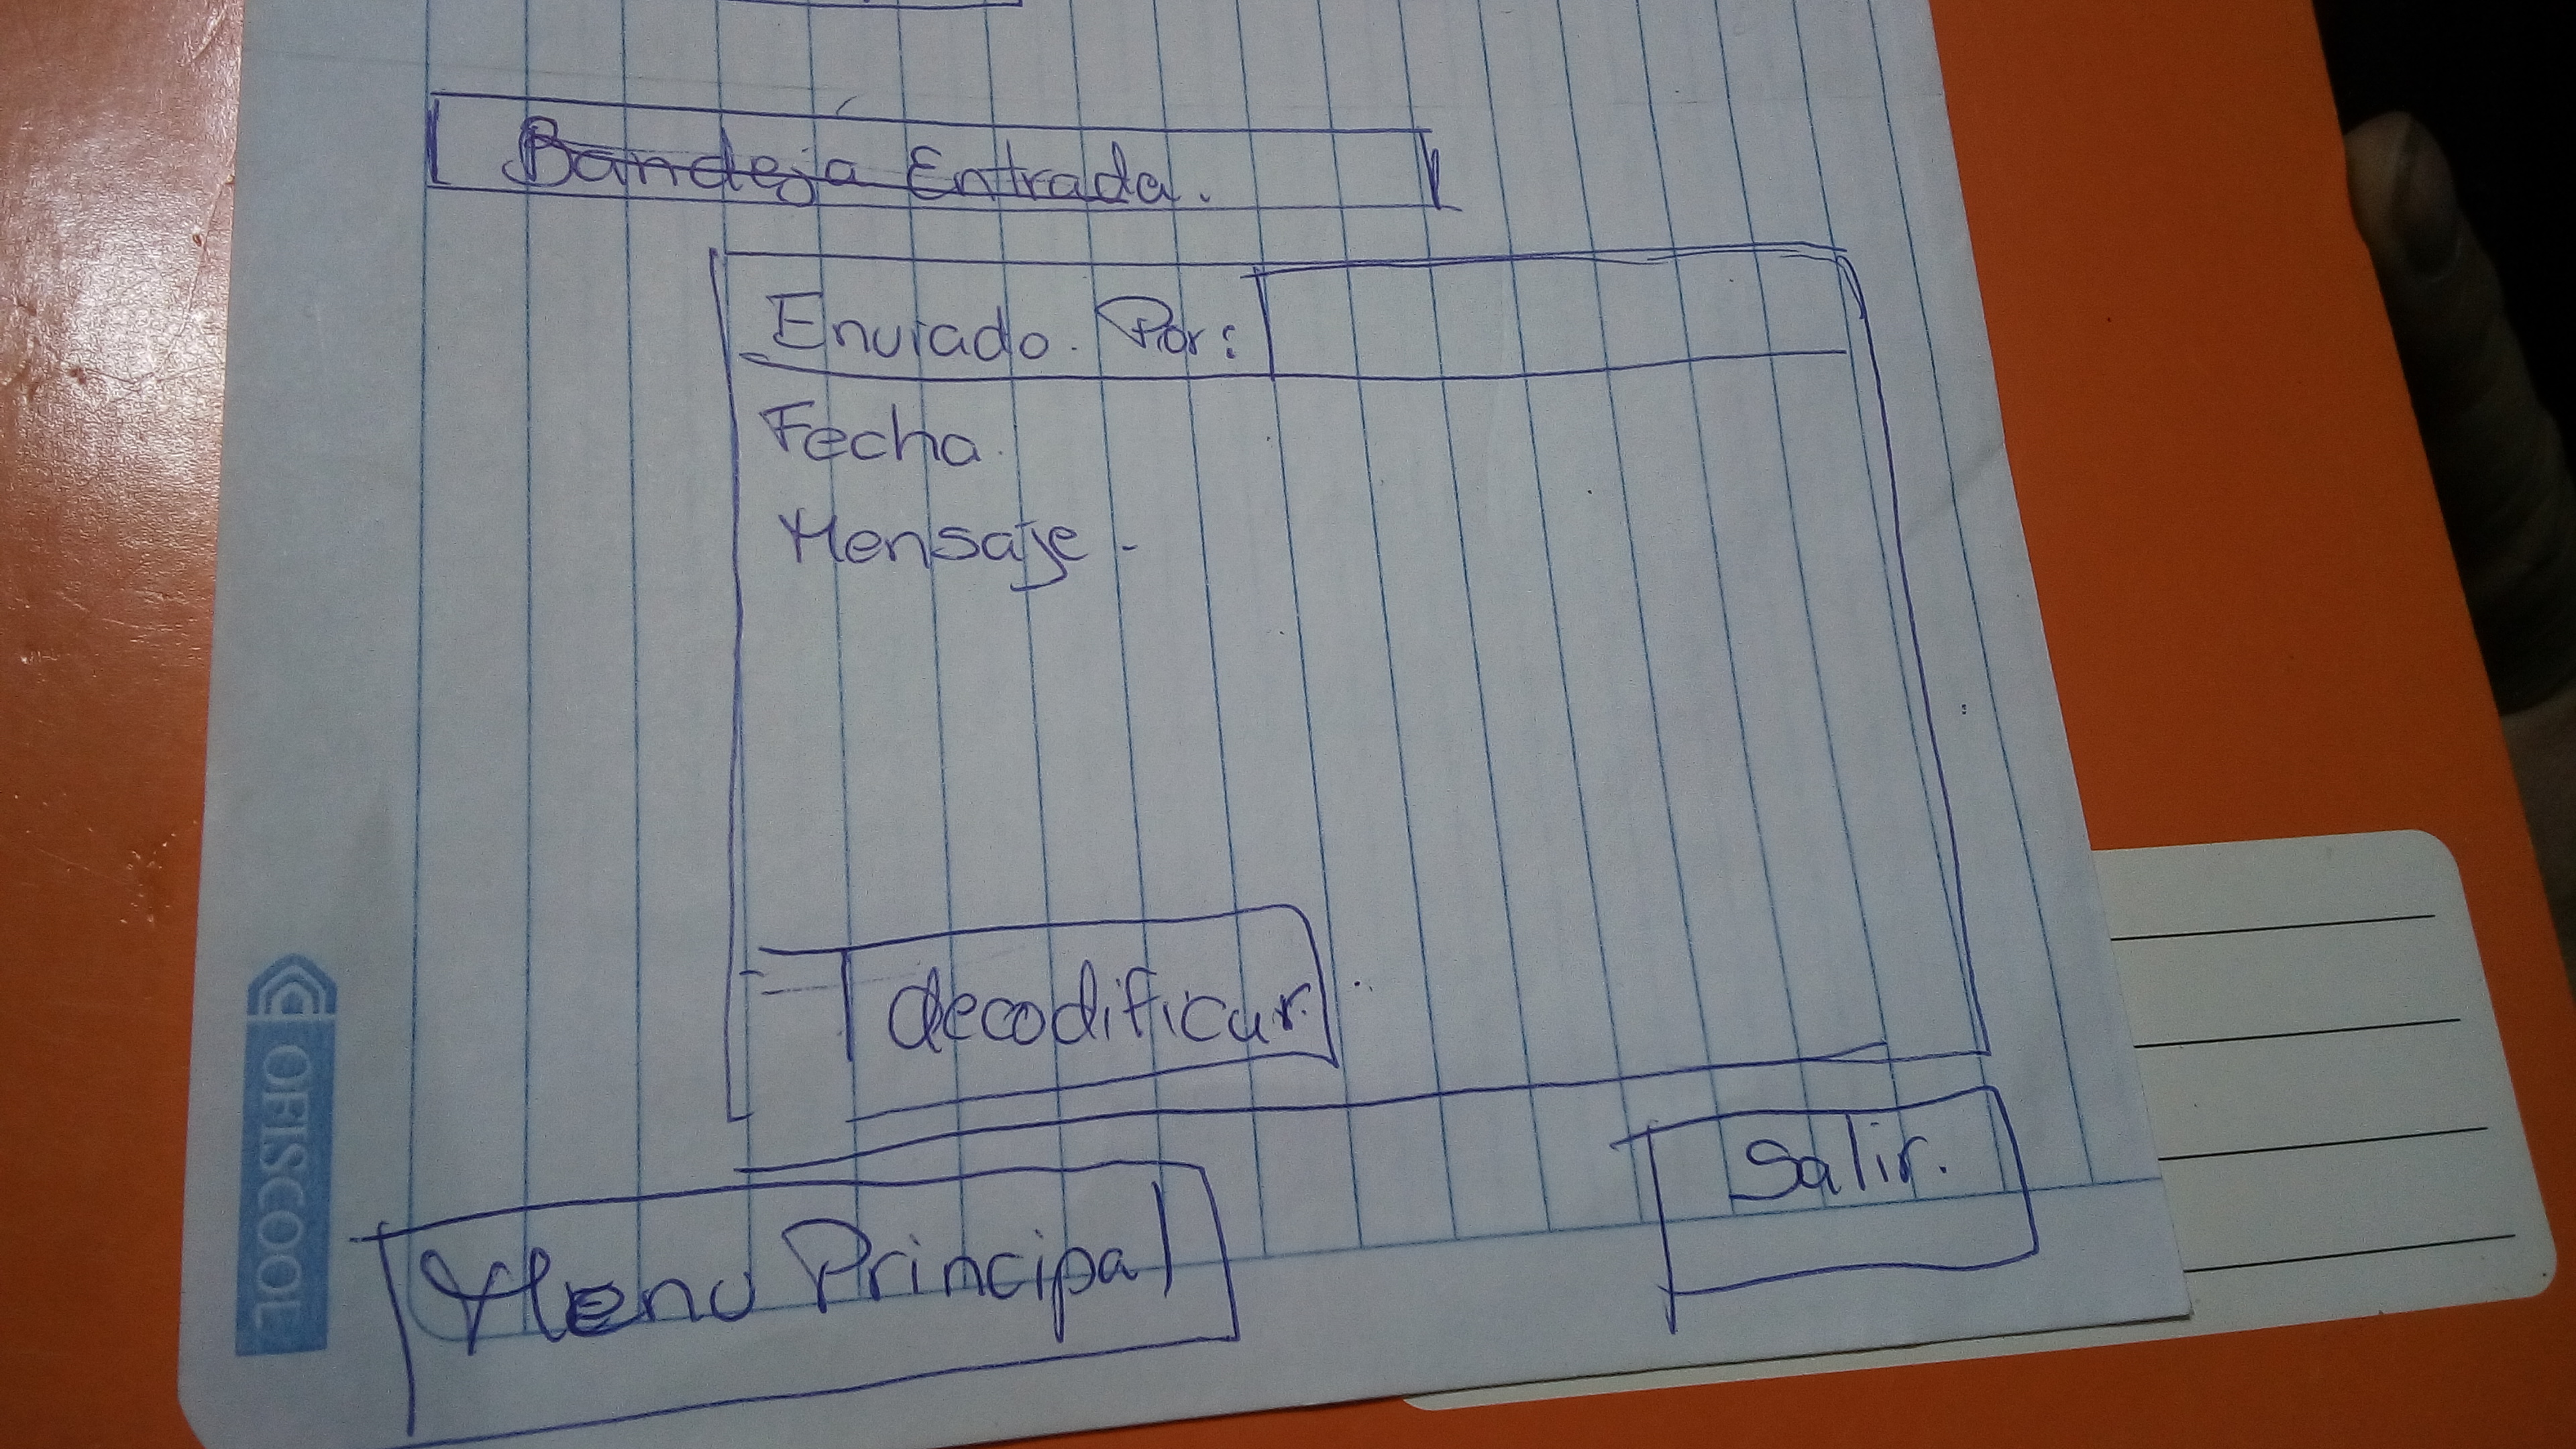 Bandeja Entrada.
Enviado Por:
Fecha.
Mensaje -
decodificar.
Salir.
Menu Principal
OFISCOOL